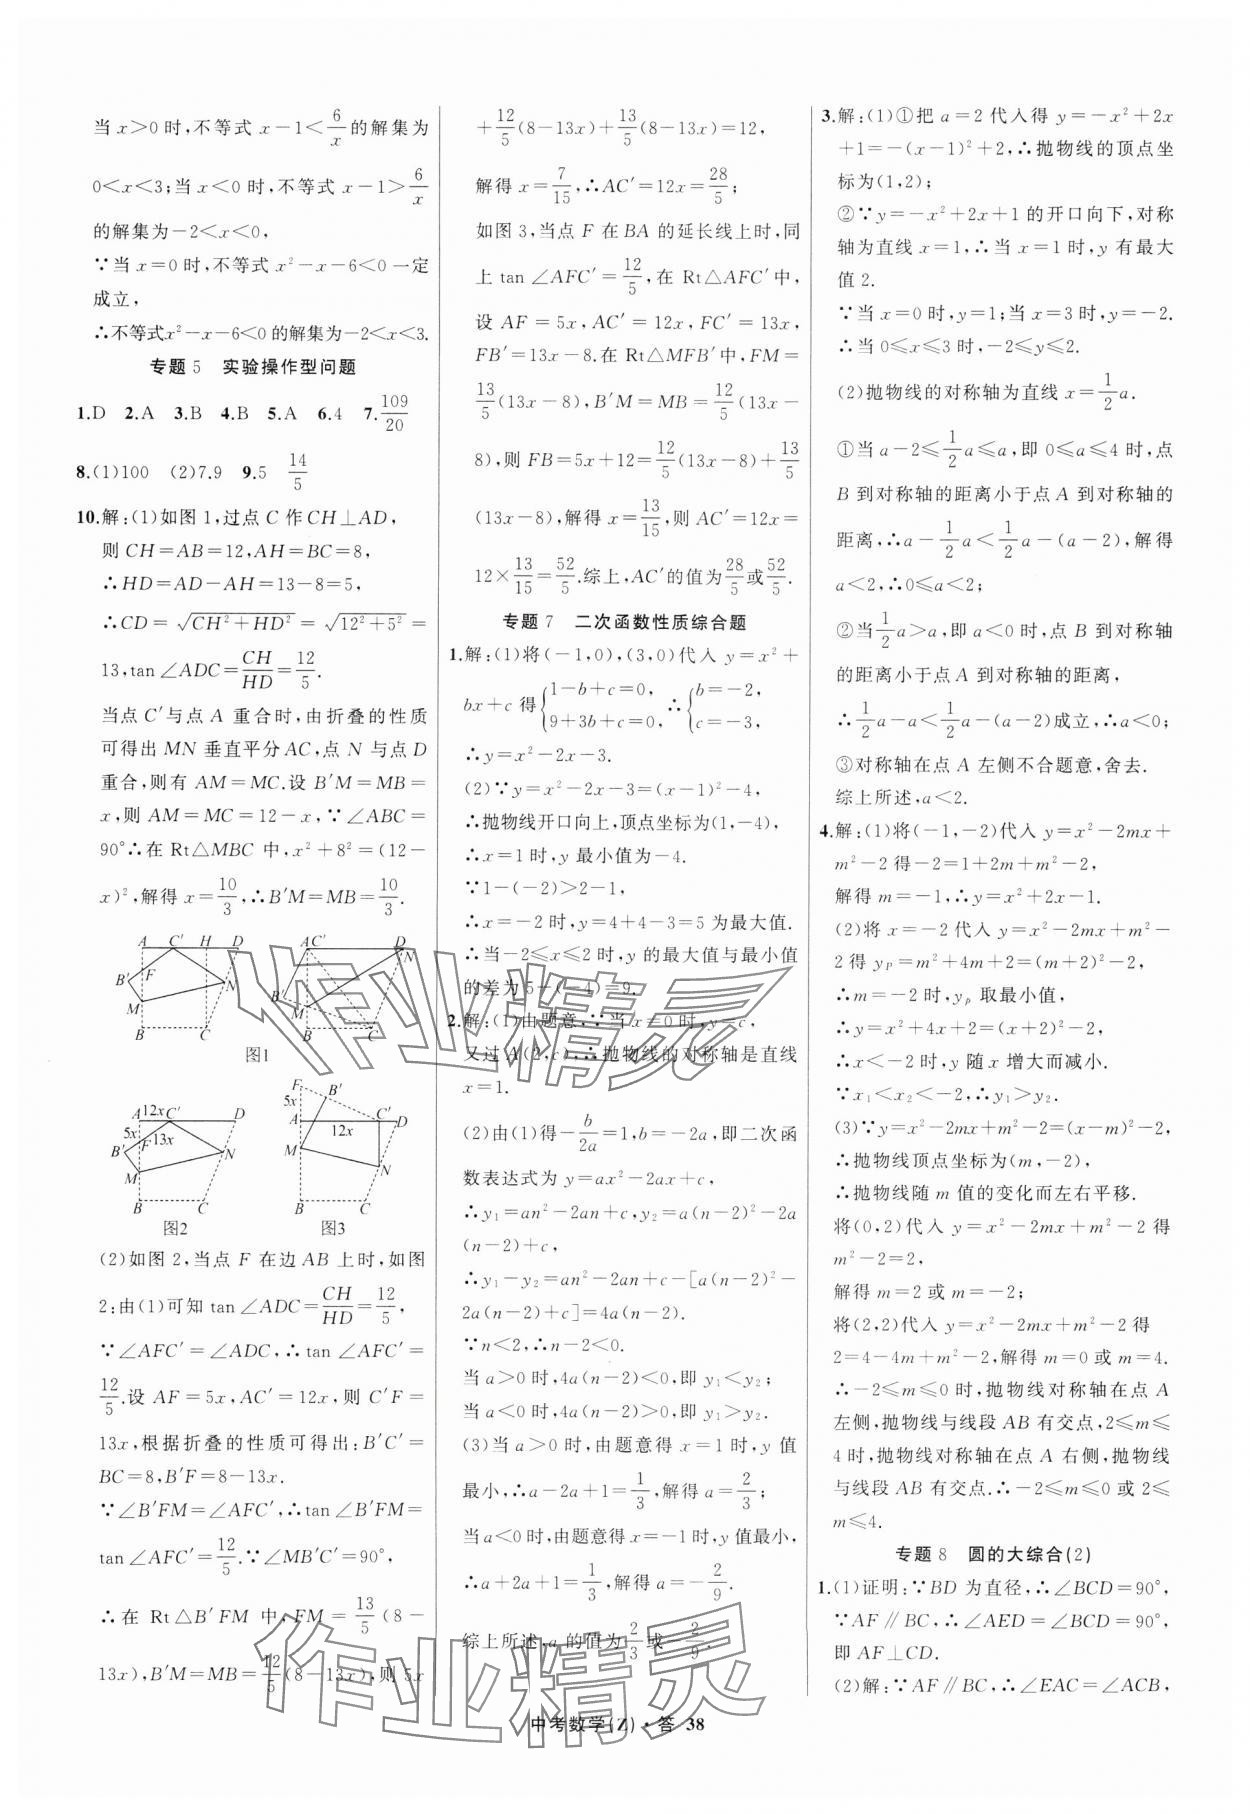 当 x>0 时,不等式 x-1<6/x 的解集为
0<x<3;当 x<0 时,不等式 x-1>6/x
的解集为-2<x<0,
∵当 x=0 时,不等式 x²-x-6<0 一定
成立,
∴不等式x²-x-6<0 的解集为-2<x<3.
专题 5 实验操作型问题
1.D 2.A 3.B 4.B 5.A 6.4 7.109/20
8.(1)100 (2)7.9 9.5 14/5
10.解:(1)如图 1,过点 C 作 CH⊥AD,
则 CH=AB=12,AH=BC=8,
∴HD=AD-AH=13-8=5,
∴CD=√(CH²+HD²)=√(12²+5²)=
13,tan∠ADC=CH/HD=12/5.
当点 C′与点 A 重合时,由折叠的性质
可得出 MN 垂直平分 AC,点 N 与点 D
重合,则有 AM=MC.设 B′M=MB=
x,则 AM=MC=12-x,∵∠ABC=
90°∴在 Rt△MBC 中,x²+8²=(12-
x)²,解得 x=10/3,∴B′M=MB=10/3.
A C′ H D
B′ F N
M
B C
图1
AC′ D
N
B′ M
B C
F B′
5x
A C′ D
12x
M N
B C
图3
A 12x C′ D
5x F 13x
B′ N
M
B C
图2
(2)如图 2,当点 F 在边 AB 上时,如图
2:由(1)可知 tan∠ADC=CH/HD=12/5,
∵∠AFC′=∠ADC,∴tan∠AFC′=
12/5.设 AF=5x,AC′=12x,则 C′F=
13x,根据折叠的性质可得出:B′C′=
BC=8,B′F=8-13x.
∵∠B′FM=∠AFC′,∴tan∠B′FM=
tan∠AFC′=12/5.∵∠MB′C′=90°,
∴在 Rt△B′FM 中,FM=13/5(8-
13x),B′M=MB=12/5(8-13x),则 5x
+12/5(8-13x)+13/5(8-13x)=12,
解得 x=7/15,∴AC′=12x=28/5;
如图 3,当点 F 在 BA 的延长线上时,同
上 tan∠AFC′=12/5,在 Rt△AFC′中,
设 AF=5x,AC′=12x,FC′=13x,
FB′=13x-8.在 Rt△MFB′中,FM=
13/5(13x-8),B′M=MB=12/5(13x-
8),则 FB=5x+12=12/5(13x-8)+13/5
(13x-8),解得 x=13/15,则 AC′=12x=
12×13/15=52/5.综上,AC′的值为28/5或52/5.
专题 7 二次函数性质综合题
1.解:(1)将(-1,0),(3,0)代入 y=x²+
bx+c 得{1-b+c=0, 9+3b+c=0, ∴{b=-2, c=-3,
∴y=x²-2x-3.
(2)∵y=x²-2x-3=(x-1)²-4,
∴抛物线开口向上,顶点坐标为(1,-4),
∴x=1 时,y 最小值为-4.
∵1-(-2)>2-1,
∴x=-2 时,y=4+4-3=5 为最大值.
∴当-2≤x≤2 时,y 的最大值与最小值
的差为 5-(-4)=9.
2.解:(1)由题意,∵当 x=0 时,y=c,
又过 A(2,c),∴抛物线的对称轴是直线
x=1.
(2)由(1)得-b/2a=1,b=-2a,即二次函
数表达式为 y=ax²-2ax+c,
∴y₁=an²-2an+c,y₂=a(n-2)²-2a
(n-2)+c,
∴y₁-y₂=an²-2an+c-[a(n-2)²-
2a(n-2)+c]=4a(n-2).
∵n<2,∴n-2<0.
当 a>0 时,4a(n-2)<0,即 y₁<y₂;
当 a<0 时,4a(n-2)>0,即 y₁>y₂.
(3)当 a>0 时,由题意得 x=1 时,y 值
最小,∴a-2a+1=1/3,解得 a=2/3;
当 a<0 时,由题意得 x=-1 时,y 值最小,
∴a+2a+1=1/3,解得 a=-2/9.
综上所述,a 的值为2/3或-2/9.
3.解:(1)①把 a=2 代入得 y=-x²+2x
+1=-(x-1)²+2,∴抛物线的顶点坐
标为(1,2);
②∵y=-x²+2x+1 的开口向下,对称
轴为直线 x=1,∴当 x=1 时,y 有最大
值 2.
∵当 x=0 时,y=1;当 x=3 时,y=-2.
∴当 0≤x≤3 时,-2≤y≤2.
(2)抛物线的对称轴为直线 x=1/2a.
①当 a-2≤1/2a≤a,即 0≤a≤4 时,点
B 到对称轴的距离小于点 A 到对称轴的
距离,∴a-1/2a<1/2a-(a-2),解得
a<2,∴0≤a<2;
②当1/2a>a,即 a<0 时,点 B 到对称轴
的距离小于点 A 到对称轴的距离,
∴1/2a-a<1/2a-(a-2)成立,∴a<0;
③对称轴在点 A 左侧不合题意,舍去.
综上所述,a<2.
4.解:(1)将(-1,-2)代入 y=x²-2mx+
m²-2 得-2=1+2m+m²-2,
解得 m=-1,∴y=x²+2x-1.
(2)将 x=-2 代入 y=x²-2mx+m²-
2 得 yP=m²+4m+2=(m+2)²-2,
∴m=-2 时,yₚ 取最小值,
∴y=x²+4x+2=(x+2)²-2,
∴x<-2 时,y 随 x 增大而减小.
∵x₁<x₂<-2,∴y₁>y₂.
(3)∵y=x²-2mx+m²-2=(x-m)²-2,
∴抛物线顶点坐标为(m,-2),
∴抛物线随 m 值的变化而左右平移.
将(0,2)代入 y=x²-2mx+m²-2 得
m²-2=2,
解得 m=2 或 m=-2;
将(2,2)代入 y=x²-2mx+m²-2 得
2=4-4m+m²-2,解得 m=0 或 m=4.
∴-2≤m≤0 时,抛物线对称轴在点 A
左侧,抛物线与线段 AB 有交点,2≤m≤
4 时,抛物线对称轴在点 A 右侧,抛物线
与线段 AB 有交点.∴-2≤m≤0 或 2≤
m≤4.
专题 8 圆的大综合(2)
1.(1)证明:∵BD 为直径,∴∠BCD=90°,
∵AF∥BC,∴∠AED=∠BCD=90°,
即 AF⊥CD.
(2)解:∵AF∥BC,∴∠EAC=∠ACB,
中考数学(Z)·答 38
作业精灵
作业精灵